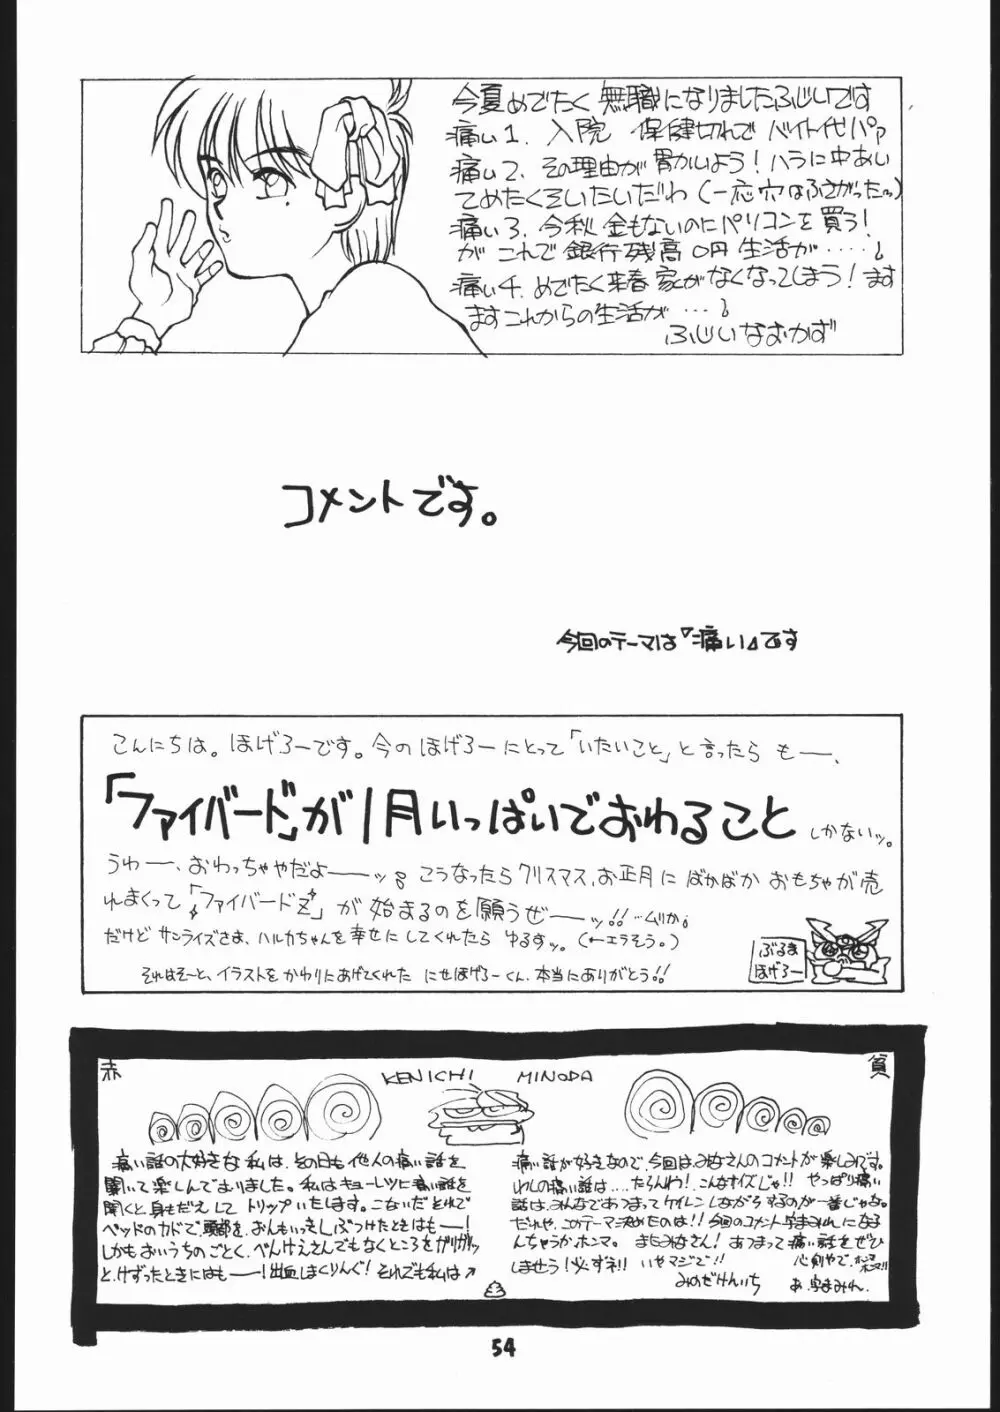 今夏めでたく 無職になりましたふじいです
痛い1. 入院 保健切れで バイト代パァ
痛い2. その理由が 胃かいよう! ハラに中あい
てめたくそいたいだわ (一応穴はふさがった〜)
痛い3. 今秋 金もないのにパソコンを買う!
が これで銀行残高0円 生活が・・・・・
痛い4. めでたく来春 家がなくなってしまう! ます
ますこれからの生活が・・・
ふじいなおかず
コメントです。
今回のテーマは『痛い』です
こんにちは。ほげろーです。今のほげろーにとって「いたいこと」と言ったら もー、
「ファイバード」が1月いっぱいでおわること しかないッ。
うわー、おわっちゃやだよーッ。こうなったらクリスマス、お正月に ばかばか おもちゃが売
れまくって「ファイバードZ」が 始まるのを願うぜーッ!! …ムリか。
だけど サンライズさま、ハルカちゃんを幸せにしてくれたら ゆるすッ。(←エラそう。)
それはそーと、イラストを かわりにあげてくれた にせほげろーくん、本当にありがとう!!
ぶるま
ほげろー
赤
KENICHI MINODA
貧
痛い話の大好きな私は、その日も他人の痛い話を
聞いて楽しんでおりました。私はキョーレツに痛い話を
聞くと、身もだえして トリップいたします。こないだ とれで
ベッドのカドで、頭部を、おんもいっきし、ぶつけたときはもー!
しかも おいうちのごとく、べんけえさんでもなくところをガリガリッ
と、けずったときにはもー!出血しまくりんぐ! それでも私は↗
痛い話が好きなので、今回はみなさんのコメントが楽しみです。
わしの痛い話は....たらんわ! こんなオイズじゃ!! やっぱり痛い
話は、みんなであつまって ケイレンしながらするのが一番じゃな。
だれや、このテーマ決めたのは!! 今回のコメント 字まみれになる
んちゃうか、ホンマ。 またみなさん! あつまって痛い話をぜひ
しませう! 必ずネ!! いやマジで!! 心剣やで、ホンマホンマ!!
みのだけんいち あ、字まみれ。
54